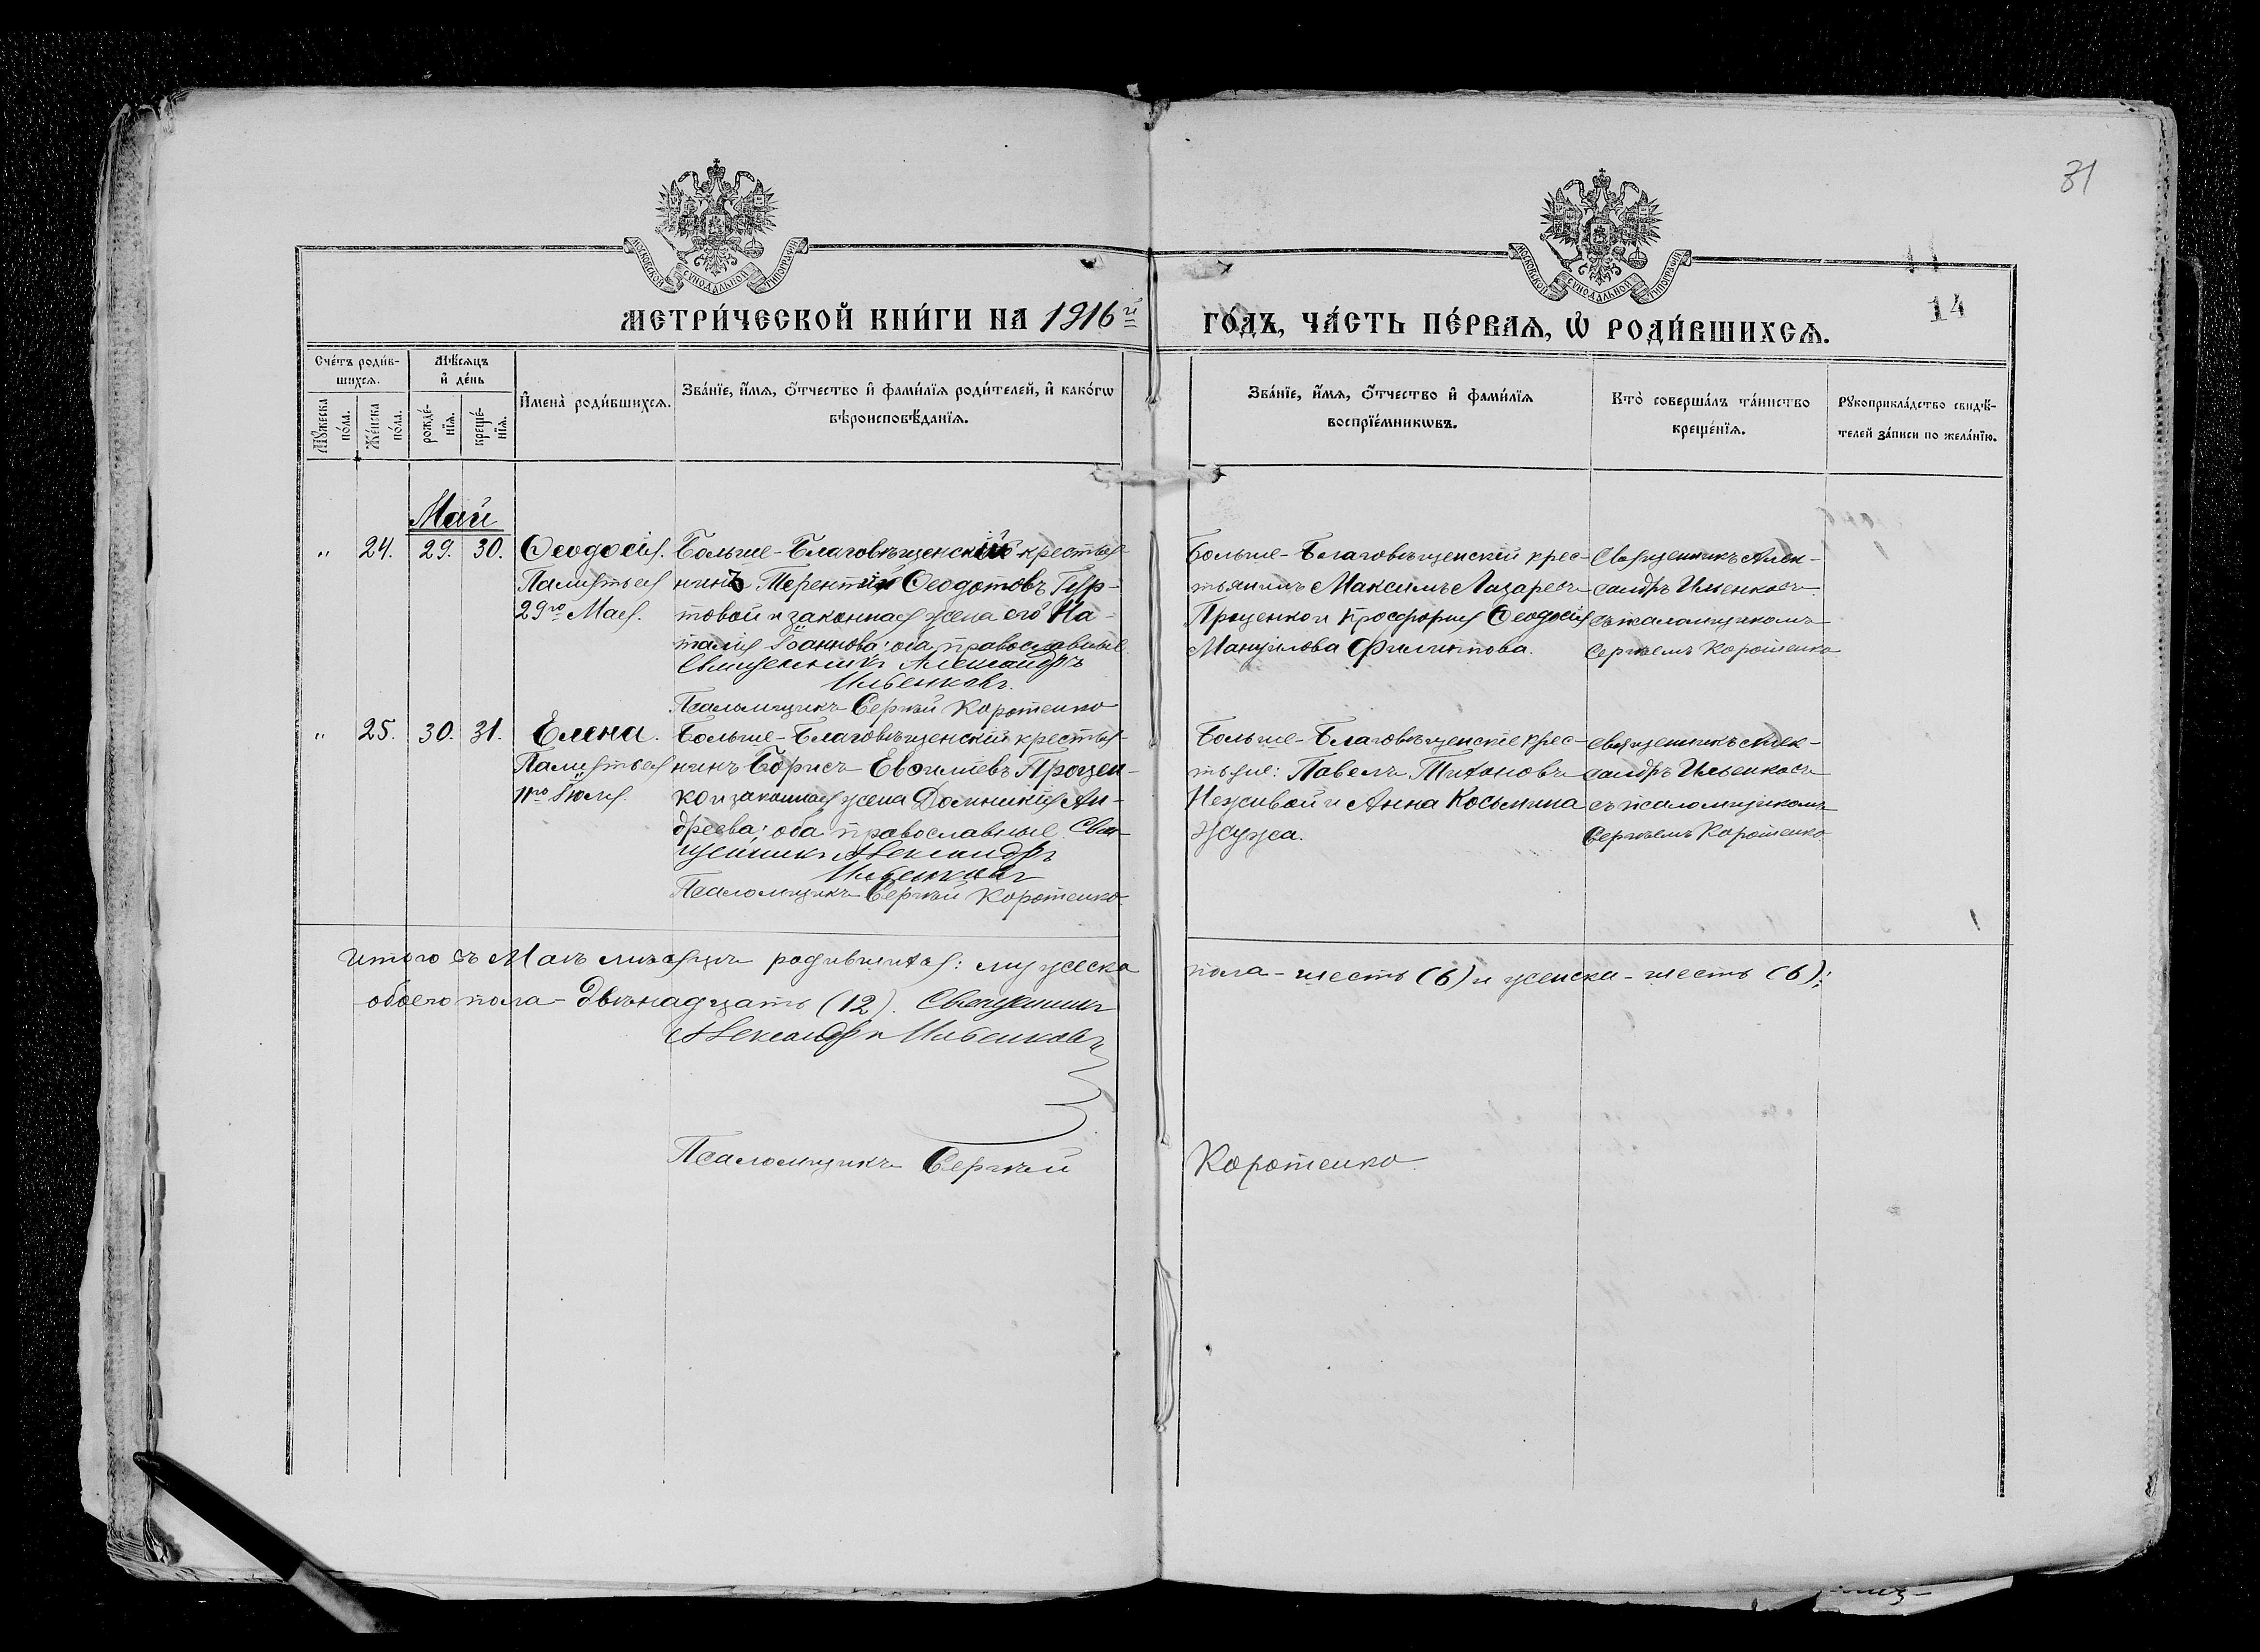 31
МОСКОВСКОЙ СѴНОДАЛЬНОЙ ТИПОГРАФІИ
МОСКОВСКОЙ СѴНОДАЛЬНОЙ ТИПОГРАФІИ
МЕТРИ́ЧЕСКОЙ КНИ́ГИ НА 1916й
ГО́ДЪ, ЧА́СТЬ ПЕ́РВАѦ, Ѡ҆ РОДИ́ВШИХСѦ.
14
Сче́тъ роди́в-
шихсѧ.
Мѣ́сѧцъ
и҆ де́нь
Мꙋ́жеска
по́ла.
Же́нска
по́ла.
рожде́-
нїѧ.
креще́-
нїѧ.
И҆мена̀ роди́вшихсѧ.
Зва́нїе, и҆́мѧ, ѻ҆́тчество и҆ фами́лїѧ роди́телей, и҆ како́гѡ
вѣроисповѣ́данїѧ.
Зва́нїе, и҆́мѧ, ѻ҆́тчество и҆ фами́лїѧ
воспрїе́мникѡвъ.
Кто̀ соверша́лъ та́инство
креще́нїѧ.
Рꙋкоприкла́дство свидѣ́-
телей за́писи по жела́нїю.
Май
„ 24. 29. 30.
Ѳеодосія.
Память ея
29го Мая.
Больше-Благовѣщенскій крестья-
нинъ Терентій Ѳеодотовъ Гур-
товой и законная жена его На-
талія Іоаннова; оба православные
Священникъ Александръ
Ильенковъ.
Псаломщикъ Сергѣй Коротенко
Больше-Благовѣщенскій крес-
тьянинъ Максимъ Лазаревъ
Проценко и просфорня Ѳеодосія
Мануилова Филиппова.
Священникъ Алек-
сандръ Ильенковъ
съ псаломщикомъ
Сергѣемъ Коротенко
„ 25. 30. 31.
Елена.
Память ея
11го Іюля.
Больше-Благовѣщенскій крестья-
нинъ Борисъ Евѳиміевъ Процен-
ко и законная жена Домникія Ан-
дреева; оба православные. Свя-
щенникъ Александръ
Ильенковъ
Псаломщикъ Сергѣй Коротенко.
Больше-Благовѣщенскіе крес-
тьяне: Павелъ Тихоновъ
Неживой и Анна Косьмина
Жужа.
Священникъ Алек-
сандръ Ильенковъ
съ псаломщикомъ
Сергѣемъ Коротенко
Итого въ Маѣ мѣсяцѣ родившихся: мужеска
пола - шесть (6) и женска - шесть (6);
обоего пола - двѣнадцать (12). Священникъ
Александръ Ильенковъ
Псаломщикъ Сергѣй
Коротенко.